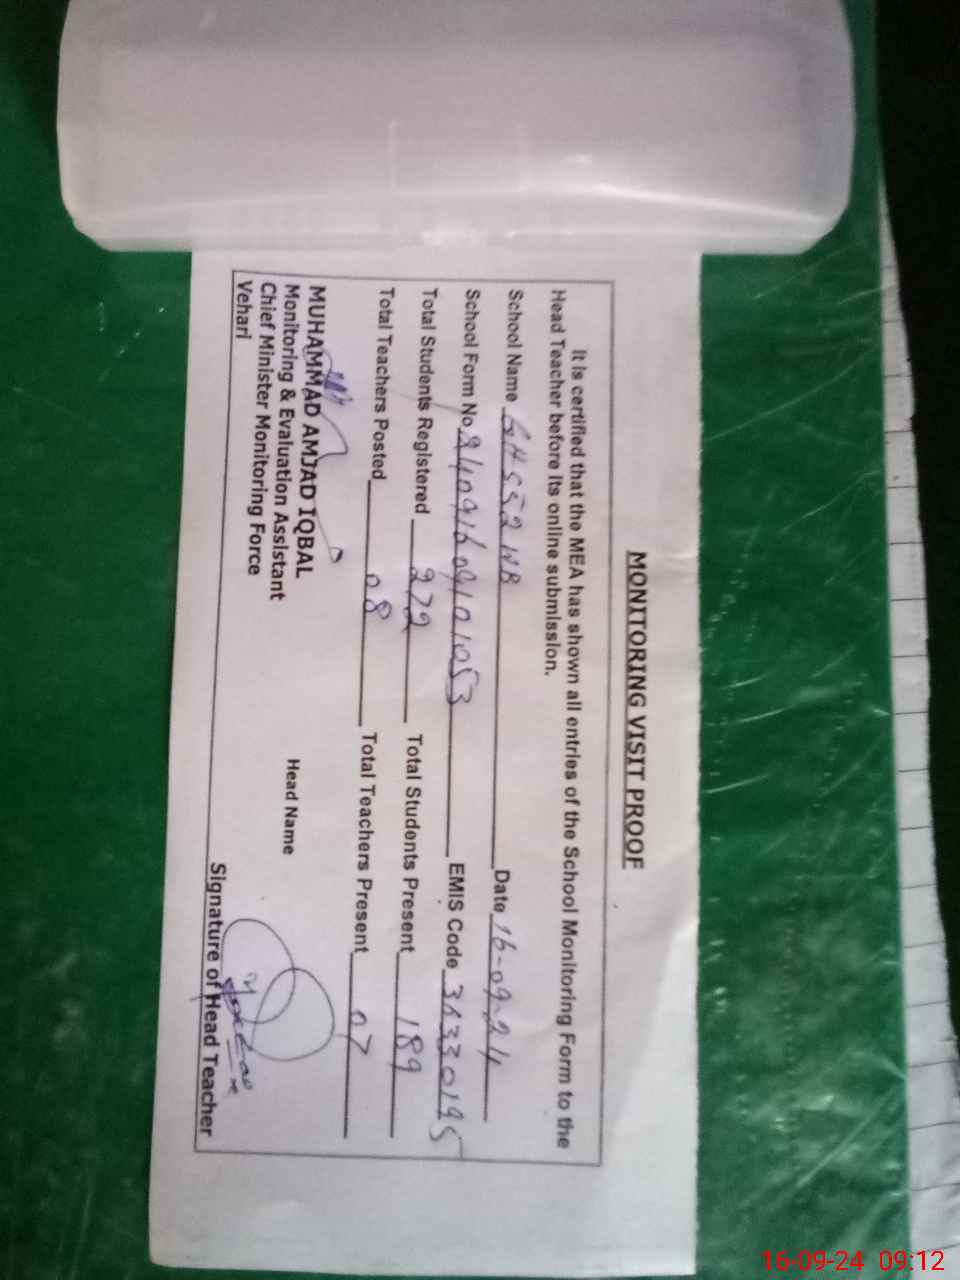 MONITORING VISIT PROOF
It is certified that the MEA has shown all entries of the School Monitoring Form to the
Head Teacher before its online submission.
School Name GHS 52 WB Date 16-09-24
School Form No 24091609101053 EMIS Code 36330195
Total Students Registered 272 Total Students Present 189
Total Teachers Posted 08 Total Teachers Present 07
MUHAMMAD AMJAD IQBAL
Monitoring & Evaluation Assistant
Chief Minister Monitoring Force
Vehari
Head Name
Signature of Head Teacher
16-09-24 09:12